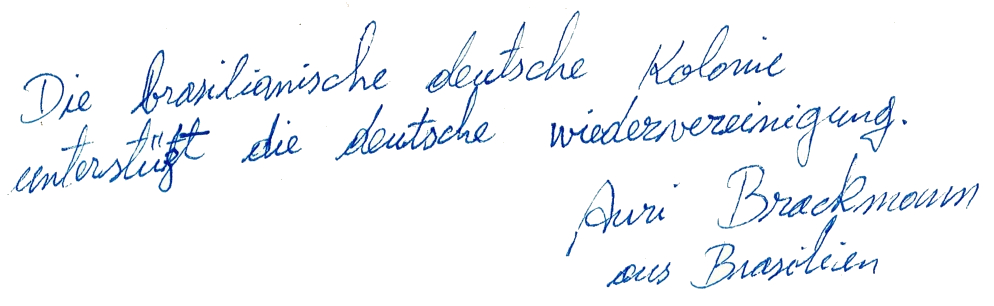 Die brasilianische deutsche Kolonie
unterstützt die deutsche wiedervereinigung.
Auri Brackmann
aus Brasilien